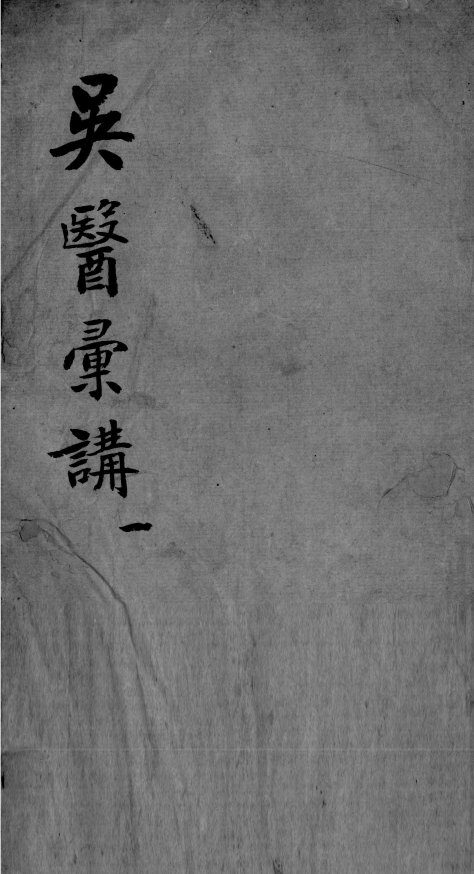 吳醫彙講
一